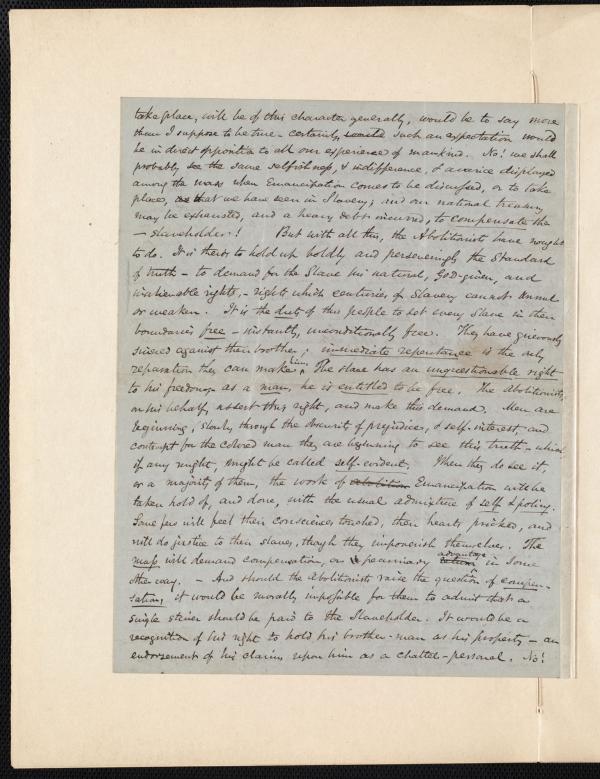 take place, will be of this character generally, would be to say more
than I suppose to be true - certainly would such an expectation would
be in direct opposition to all our experience of mankind. No! we shall
probably see the same selfishness, & indifference, & avarice displayed
among the mass when Emancipation comes to be discussed, or to take
place, that we have seen in Slavery; and our national treasury
may be exhausted, and a heavy debt incurred, to compensate the
- slaveholder-! But with all this, the Abolitionists have nought
to do. It is theirs to hold up boldly and perseveringly the Standard
of truth - to demand for the Slave his natural, God-given, and
inalienable rights, - rights which centuries of Slavery cannot annul
or weaken. It is the duty of this people to set every slave in their
boundaries free - instantly, unconditionally free. They have grievously
sinned against their brother; immediate repentance is the only
reparation they can make him. The slave has an unquestionable right
to his freedom as a man, he is entitled to be free. The Abolitionists,
on his behalf, assert this right, and make this demand. Men are
beginning, slowly, through the obscurity of prejudices, & self-interest, and
contempt for the colored man they are beginning to see this truth - which
if any might, might be called self-evident. When they do see it,
or a majority of them, the work of abolition Emancipation will be
taken hold of, and done, with the usual admixture of self & policy.
Some few will feel their consciences touched, their hearts pricked, and
will do justice to their slaves, though they impoverish themselves. The
mass will demand compensation, or pecuniary return advantage in some
other way. - And should the Abolitionists raise the question of compen-
sation, it would be morally impossible for them to admit that a
single stiver should be paid to the Slaveholder. It would be a
recognition of his right to hold his brother-man as his property - an
endorsement of his claim upon him as a chattel-personal. No!